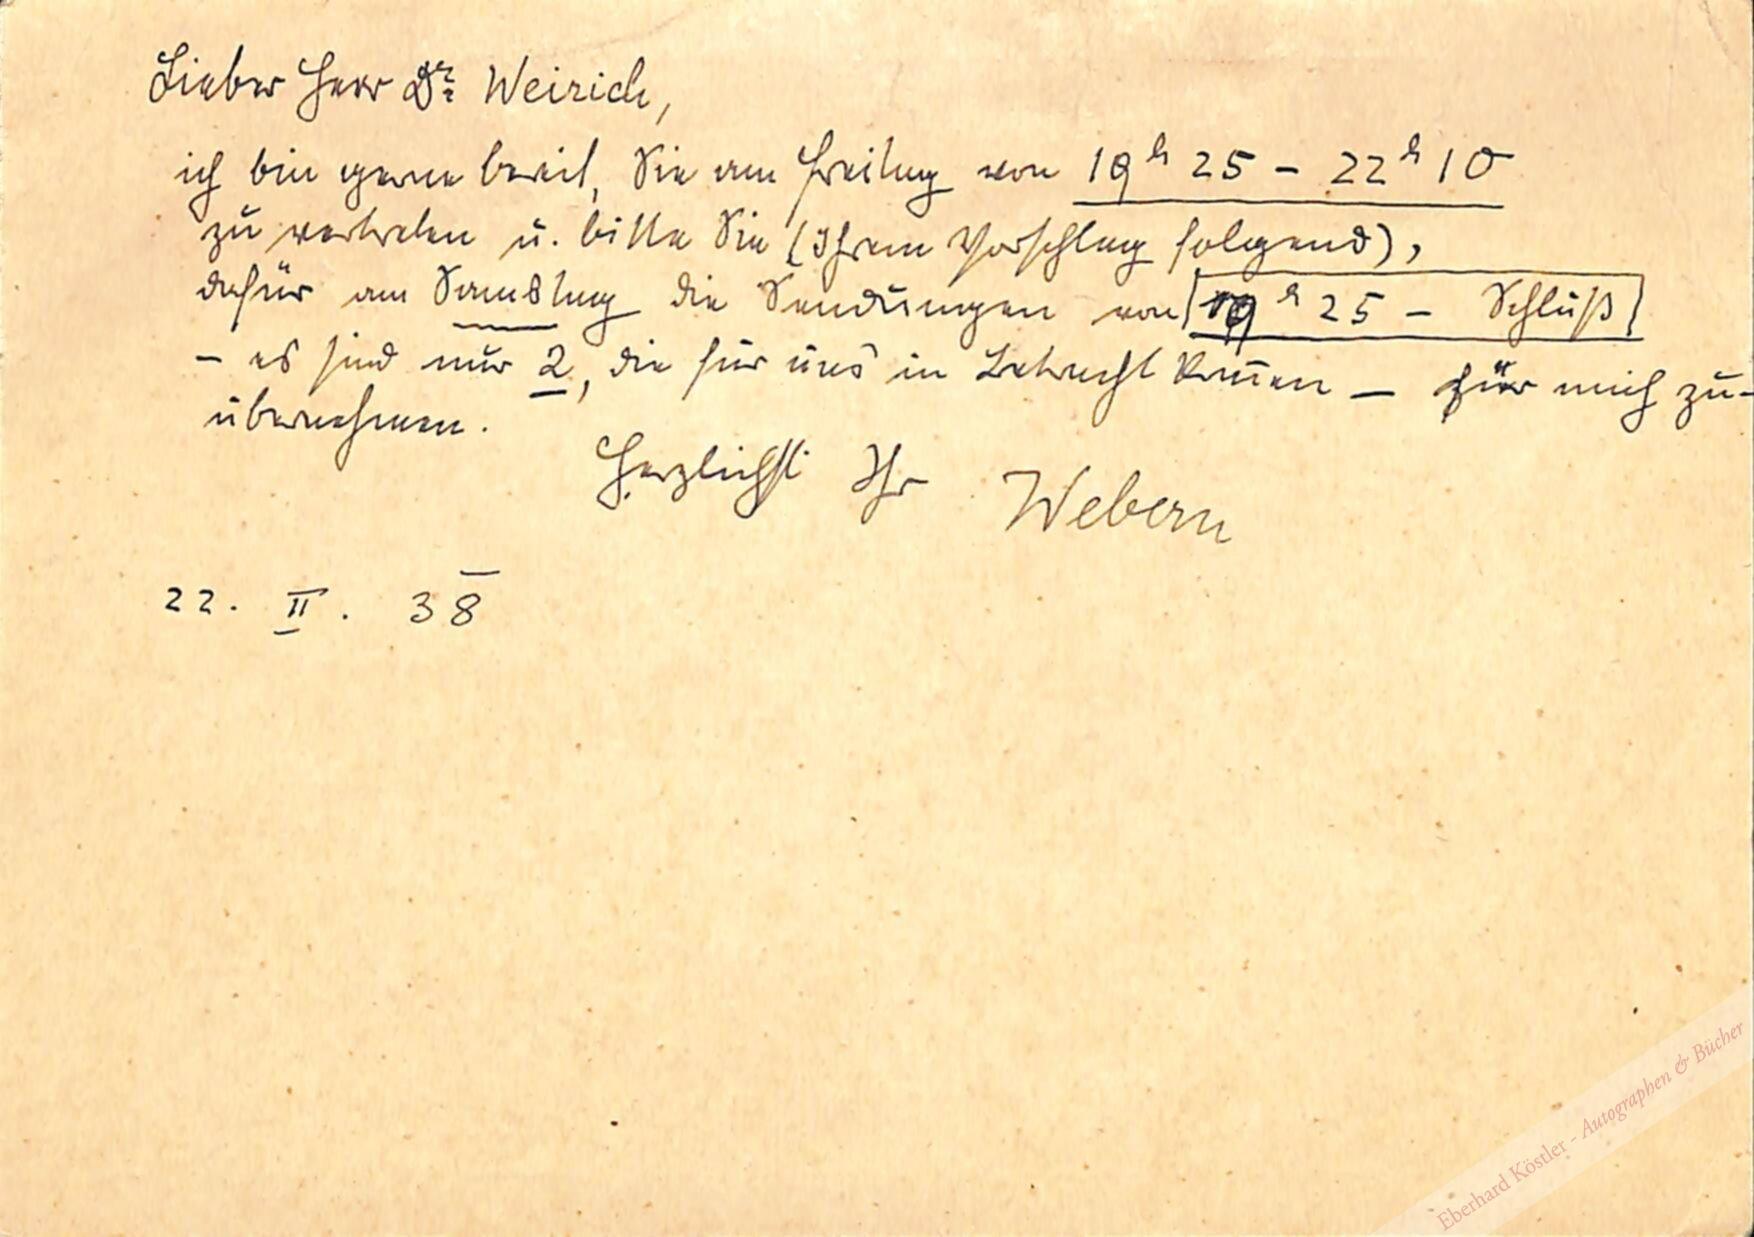 Lieber Herr Dr. Weirich,
ich bin gerne bereit, Sie am Freitag von 19h 25 – 22h 10
zu vertreten u. bitte Sie (Ihrem Vorschlag folgend),
dafür am Samstag die Sendungen von 19h 25 – Schluß
– es sind nur 2, die für uns in Betracht kom̅en – für mich zu-
übernehmen.
Herzlichst Ihr Webern
22. II. 38
Eberhard Köstler - Autographen & Bücher